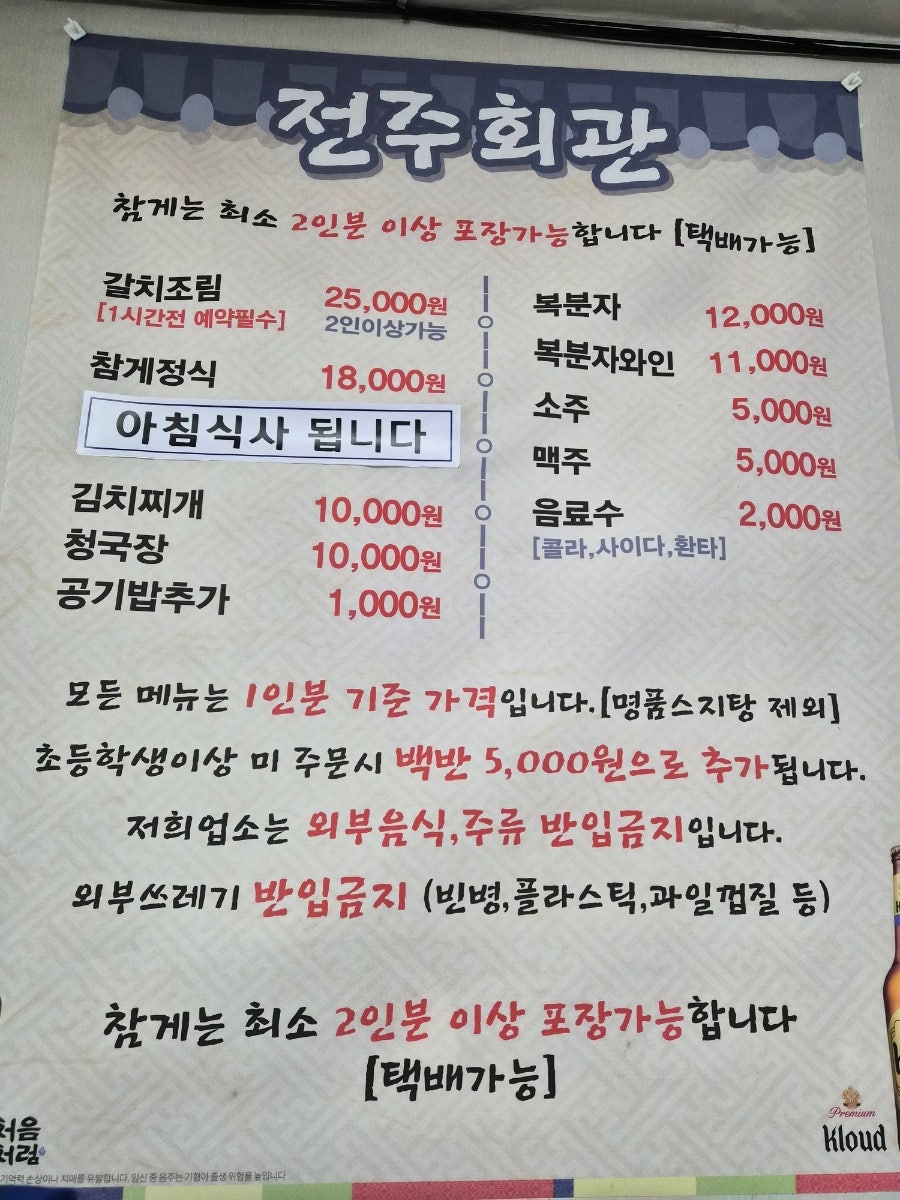 전주회관
참게는 최소 2인분 이상 포장가능합니다 [택배가능]
갈치조림 25,000원
[1시간전 예약필수] 2인이상가능
참게정식 18,000원
아침식사 됩니다
김치찌개 10,000원
청국장 10,000원
공기밥추가 1,000원
복분자 12,000원
복분자와인 11,000원
소주 5,000원
맥주 5,000원
음료수 2,000원
[콜라,사이다,환타]
모든 메뉴는 1인분 기준 가격입니다.[명품스지탕 제외]
초등학생이상 미 주문시 백반 5,000원으로 추가됩니다.
저희업소는 외부음식,주류 반입금지입니다.
외부쓰레기 반입금지 (빈병,플라스틱,과일껍질 등)
참게는 최소 2인분 이상 포장가능합니다
[택배가능]
처음
처럼
Premium
Kloud
기억력 손상이나 치매를 유발합니다. 임신 중 음주는 기형아 출생 위험을 높입니다